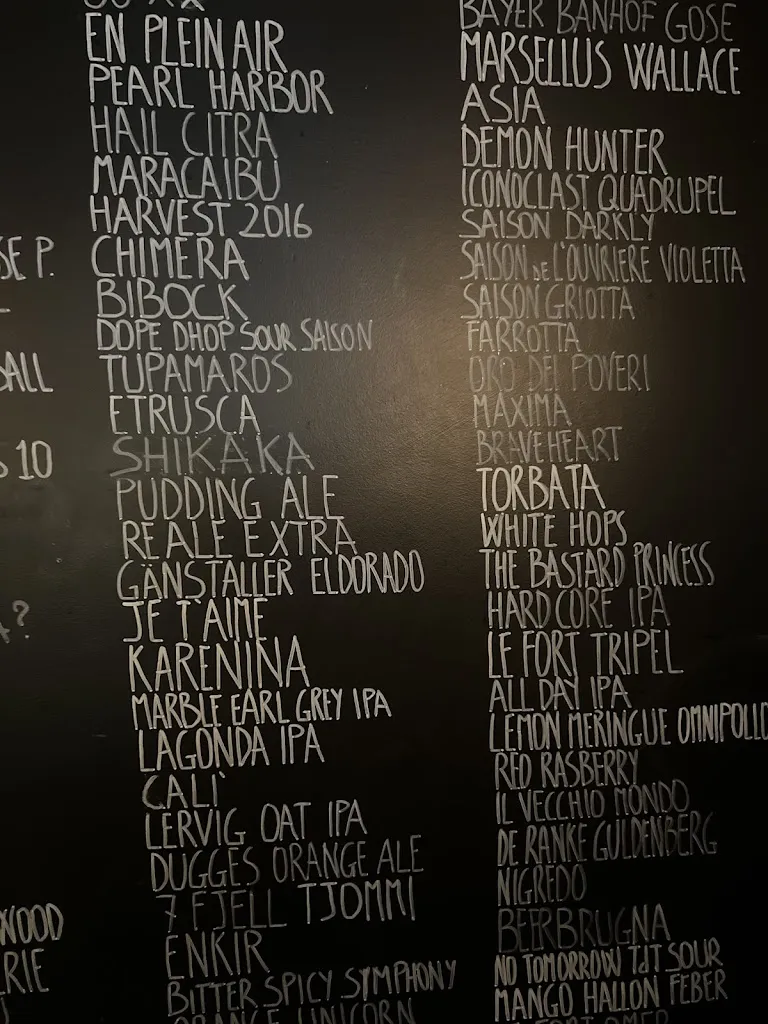 SE P.
BALL
10
A?
WOOD
RIE
EN PLEIN AIR
PEARL HARBOR
HAIL CITRA
MARACAIBU
HARVEST 2016
CHIMERA
BIBOCK
DOPE DHOP SOUR SAISON
TUPAMAROS
ETRUSCA
SHIKAKA
PUDDING ALE
REALE EXTRA
GÄNSTALLER ELDORADO
JE T'AIME
KARENINA
MARBLE EARL GREY IPA
LAGONDA IPA
CALI'
LERVIG OAT IPA
DUGGES ORANGE ALE
7 FJELL TJOMMI
ENKIR
BITTER SPICY SYMPHONY
ORANGE UNICORN
BAYER BANHOF GOSE
MARSELLUS WALLACE
ASIA
DEMON HUNTER
ICONOCLAST QUADRUPEL
SAISON DARKLY
SAISON DE L'OUVRIERE VIOLETTA
SAISON GRIOTTA
FARROTTA
ORO DEI POVERI
MAXIMA
BRAVEHEART
TORBATA
WHITE HOPS
THE BASTARD PRINCESS
HARDCORE IPA
LE FORT TRIPEL
ALL DAY IPA
LEMON MERINGUE OMNIPOLLO
RED RASBERRY
IL VECCHIO MONDO
DE RANKE GULDENBERG
NIGREDO
BEERBRUGNA
NO TOMORROW TJT SOUR
MANGO HALLON FEBER